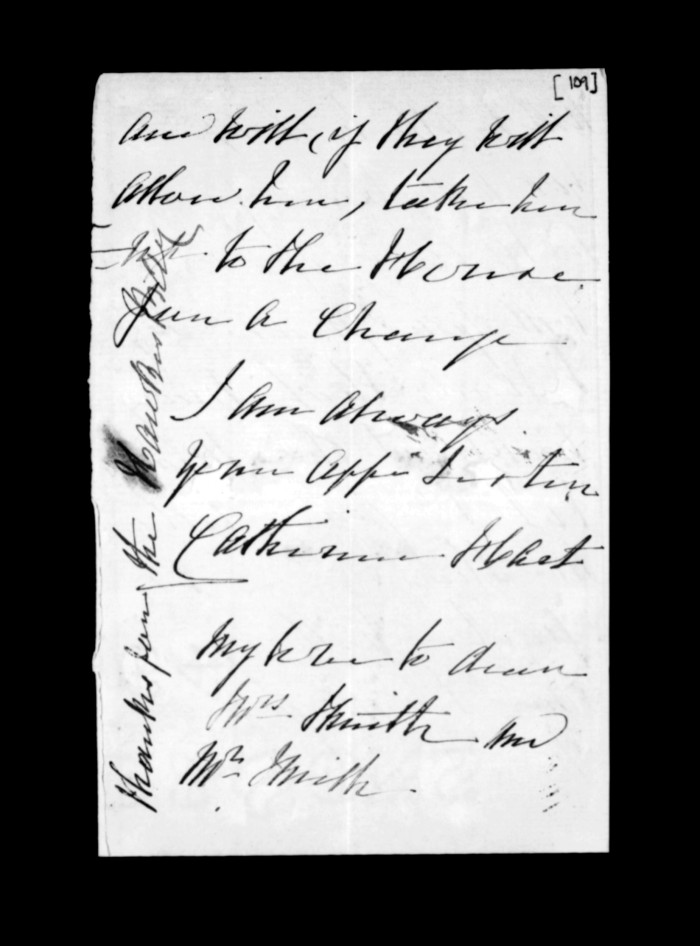 [109]
and will, if they will
allow him, take him
to the House
for a Change
I am always
your affec Sister
Catherine Hart
My love to dear
Mrs Smith and
Mr Smith.
thanks for the